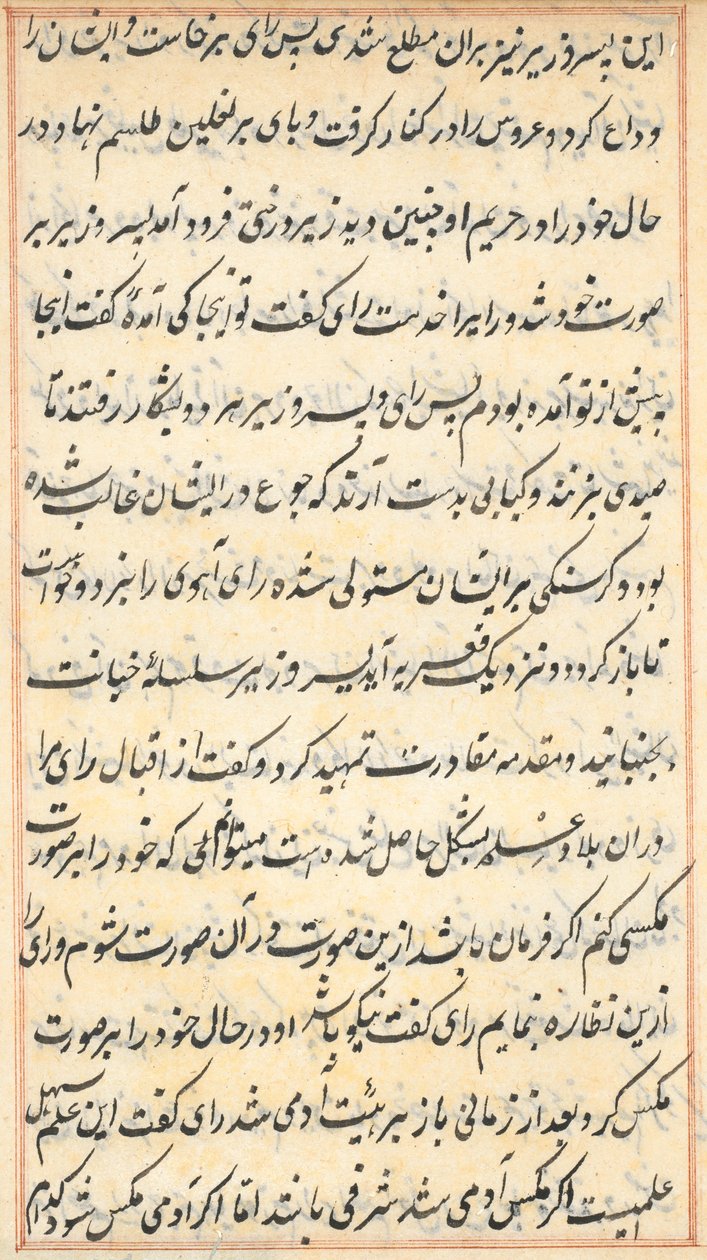 این پسر وزیر نیز بران مطلع شدی پس رای برخاست و ایشان را
وداع کرد و عروس را در کنار گرفت و پای بر نعلین طلسم نهاد در
حال خود را در حریم او چنین دید زیر درختی فرود آمد پسر وزیر بر
صورت خود شد و رای را خدمت رای گفت تو اینجا کی آمدهٔ گفت اینجا
پیش از تو آمده بودم پس رای و پسر وزیر هر دو بشکار رفتند تا
صیدی بزنند و کبابی بدست آرند که جوع در ایشان غالب شده
بود و کرسنکی بر ایشان مستولی شده رای آهوی را بزد و خواست
تا باز کردد و نزدیک قریه آید پسر وزیر سلسلهٔ خیانت
بجنبانید و مقدمه مقادرت تمهید کرد و گفت از اقبال رای مرا
دران بلاد علم بشکل حاصل شده است میتوانم که خود را بر صورت
مکسی کنم اکر فرمان باشد ازین صورت در آن صورت شوم و رای را
ازین نظاره بنمایم رای گفت نیکو باشد او در حال خود را بر صورت
مکس کرد و بعد از زمانی باز بر هیئت آدمی شد رای گفت این علم سهل
علمیست اکر مکس آدمی شد شرفی باشد امّا اکر آدمی مکس شود کدام